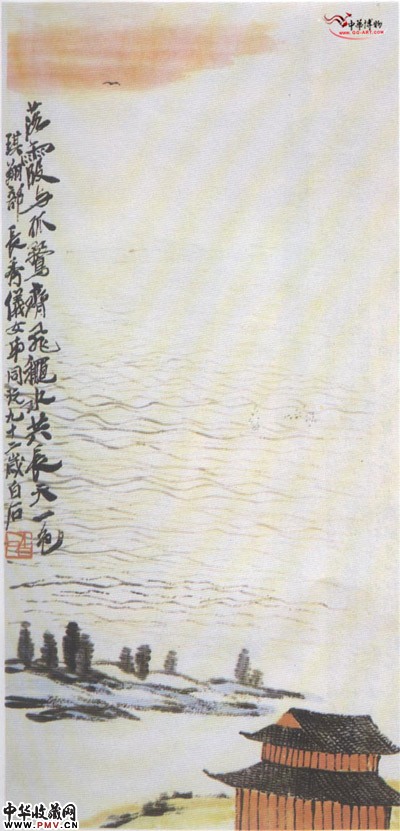 中華博物
WWW.GG-ART.COM
落霞与孤鶩齊飛龝水共長天一色
琪翔部長秀儀女弟同玩九十二歲白石
中华收藏网
WWW.PMV.CN